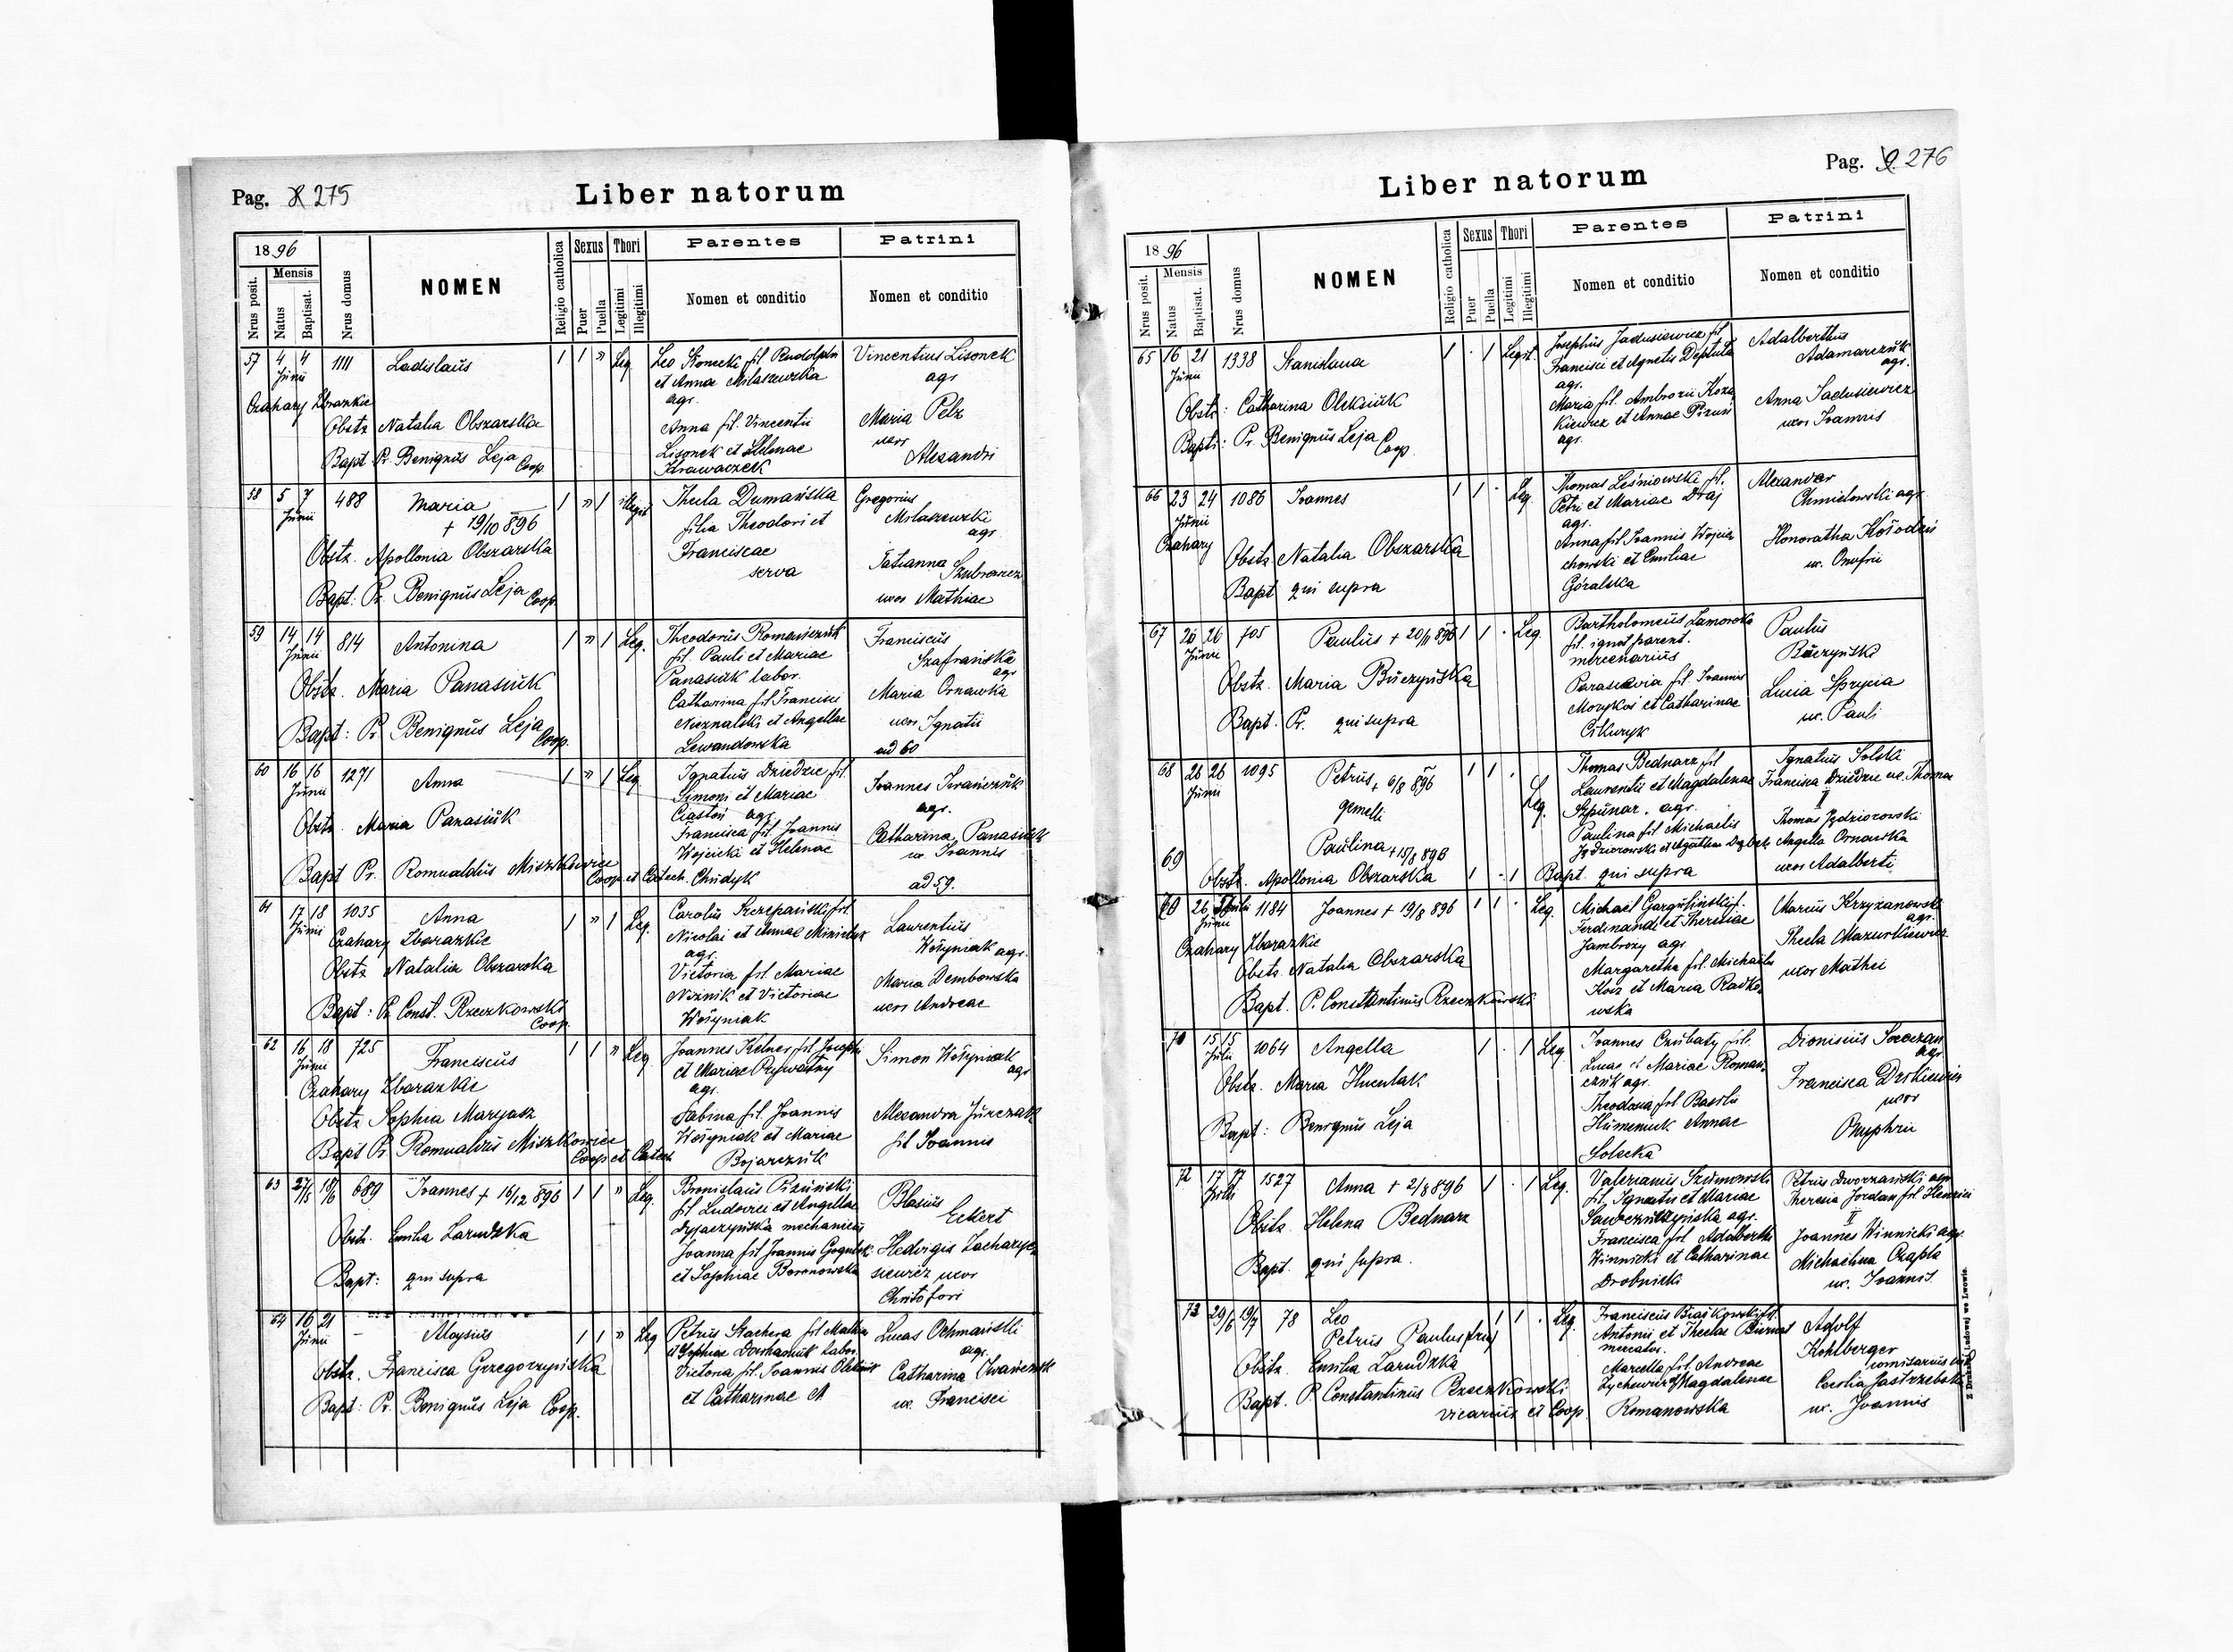 Pag. 8 275
Liber natorum
1896
Nrus posit.
Mensis
Natus
Baptisat.
Nrus domus
NOMEN
Religio catholica
Sexus
Puer
Puella
Thori
Legitimi
Illegitimi
Parentes
Nomen et conditio
Patrini
Nomen et conditio
57 4 4 Junii 1111 Ladislaus 1 1 " Leg
Czahary Zbarazkie
Obstz Natalia Obszarska
Bapt Pr. Benignus Leja Coop
Leo Konecki fil. Rudolphi
et Annae Milaszewska
agr.
Anna fil. Vincentii
Lisonek et Helenae
Krawaczek
Vincentius Lisonek
agr
Maria Pelz
uxor
Alexandri
58 5 7 Junii 488 Maria 1 " 1 illegit
+ 19/10 896
Obstz. Apollonia Obszarska
Bapt: Pr. Benignus Leja Coop.
Thecla Dumańska
filia Theodori et
Franciscae
serva
Gregorius
Milaszewski
agr
Tatianna
uxor Mathiae
59 14 14 Junii 814 Antonina 1 " 1 Leg.
Obstz. Maria Panasiuk
Bapt: Pr. Benignus Leja Coop.
Theodorus Romaniczuk
fil. Pauli et Mariae
Panasiuk labor.
Catharina fil Francisci
et Angellae
Lewandowska
Franciscus
Szafrański
agr
Maria Ornawka
uxor. Ignatii
ad 60
60 16 16 Junii 1271 Anna 1 " 1 Leg
Obstz. Maria Panasiuk
Bapt Pr. Romualdus Miszkowicz
Coop. et Catech.
Ignatius Dziedzic fil.
Simoni et Mariae
Ciastoń agr.
Francisca fil. Joannis
Wojcicki et Helenae
Chudyk
Joannes Iwańczuk
agr.
Catharina Panasiuk
ux. Ioannis
ad 59.
61 17 18 Junii 1035 Anna 1 " 1 Leg.
Czahary Zbarazkie
Obstz Natalia Obszarska
Bapt: Pr. Const. Rzeczkowski
Coop.
Carolus Szczepański fil.
Nicolai et Annae
agr.
Victoria fil Mariae
et Victoriae
Wożyniak
Laurentius
Wożyniak agr.
Maria Dembowska
uxor Andreae
62 16 18 Junii 725 Franciscus 1 1 " Leg
Czahary Zbarazkie
Obstz Sophia Maryasz
Bapt Pr Romualdus Miszkowicz
Coop et Catech
Joannes Kelner fil. Josephi
et Mariae Prywatny
agr.
Sabina fil. Joannis
Wożyniak et Mariae
Bojarczuk
Simon Wożyniak
agr
Alexandra Jurczak
fil Ioannis
63 27/5 18/6 689 Ioannes + 16/12 896 1 1 " Leg.
Obstz. Emilia Zarudzka
Bapt: qui supra
Bronislaus
fil Ludovici et Angellae
mechanicus
Joanna fil Joannis
et Sophiae Boronowska
Blasius
Eckert
Hedvigis Zacharya-
siewicz uxor
Christofori
64 16 21 Junii – Aloysius 1 1 " Leg
Obstz. Francisca Grzegorzyńska
Bapt: Pr. Benignus Leja Coop.
Petrus Stachera fil Mathiae
et Sophiae labor.
Victoria fil. Joannis
et Catharinae
Lucas Ochmański
agr.
Catharina Iwańczuk
ux. Francisci
Pag. 9 276
Liber natorum
1896
Nrus posit.
Mensis
Natus
Baptisat.
Nrus domus
NOMEN
Religio catholica
Sexus
Puer
Puella
Thori
Legitimi
Illegitimi
Parentes
Nomen et conditio
Patrini
Nomen et conditio
65 16 21 Junii 1338 Stanislaua 1 . 1 Legit.
Obstz: Catharina Oleksiuk
Bapt: Pr. Benignus Leja Coop.
Josephus Jadusiewicz fil
Francisci et Agnetis Deptuła
agr.
Maria fil. Ambrozii Koza
kiewicz et Annae Pizuń
agr.
Adalberthus
Adamarczuk
agr.
Anna Jadusiewicz
uxor Ioannis
66 23 24 Junii 1086 Ioannes 1 1 . Leg.
Czahary
Obstz Natalia Obszarska
Bapt qui supra
Thomas Leśniowski fil.
Petri et Mariae Draj
agr.
Anna fil Ioannis Wojcie
chowski et Emiliae
Góralska
Alexander
Chmielowski agr.
Honoratha
ux. Onufrii
67 26 26 Junii 705 Paulus + 20/11 896 1 1 . Leg.
Obstz. Maria Buczyńska
Bapt. Pr. qui supra
Bartholomeus Zamoroka
fil. ignot parent.
mercenarius
Parascevia fil. Ioannis
et Catharinae
Paulus
Buczyński
Lucia Sprycia
ux. Pauli
68 26 26 Junii 1095 Petrus + 6/8 896 1 1 .
gemelli
Leg.
69 Paulina + 15/8 896
Obstz. Apollonia Obszarska 1 . 1 Bapt. qui supra
Thomas Bednarz fil
Laurentii et Magdalenae
Szpunar. agr.
Paulina fil Michaelis
Ignatius Solski
Francisca Dziedzic ux. Thomae
II
Thomas Jędziorowski
Angella Ornawska
uxor Adalberti
70 26 Junii 1184 Joannes + 19/8 896 1 1 . Leg.
Czahary Zbarazkie
Obstz. Natalia Obszarska
Bapt. P. Constantinus Rzeczkowski
Michael
Ferdinandi et Theresiae
Jambrozy agr
Margaretha fil. Michaelis
Koz et Maria Radko-
wska
Marcus Krzyzanowski
agr.
Thecla Mazurkiewicz
uxor Mathei
70 15 15 Julii 1064 Angella 1 . 1 Leg.
Obstz. Maria Huculak
Bapt: Benignus Leja
Ioannes Czubaty fil.
Lucae et Mariae Roman-
czuk agr.
Theodosia fil Basilii
Humeniuk Annae
Solecka
Dionisius
agr
Francisca
uxor
Onuphrii
72 17 17 Julii 1527 Anna + 2/8 896 1 . 1 Leg.
Obstz. Helena Bednarz
Bapt. qui supra.
Valerianus
fil. Ignatii et Mariae
agr.
Francisca fil Adalberthi
Winnicki et Catharinae
Drobnicki
Petrus Dworzański agr
Theresia Jordan fil Henrici
II
Joannes Winnicki agr.
Michaelina Czapla
ux. Ioannis
73 29/6 19/7 78 Leo 1 1 . Leg.
Petrus Paulus
Obstz Emilia Zarudzka
Bapt. P. Constantinus Rzeczkowski
vicarius et Coop.
Franciscus
Antonii et Theclae
mercator.
Marcella fil. Andreae
Magdalenae
Romanowska
Adolf
Kohlberger
Cecilia Jastrzebska
ux. Joannis
Z Drukarni Ludowej we Lwowie.